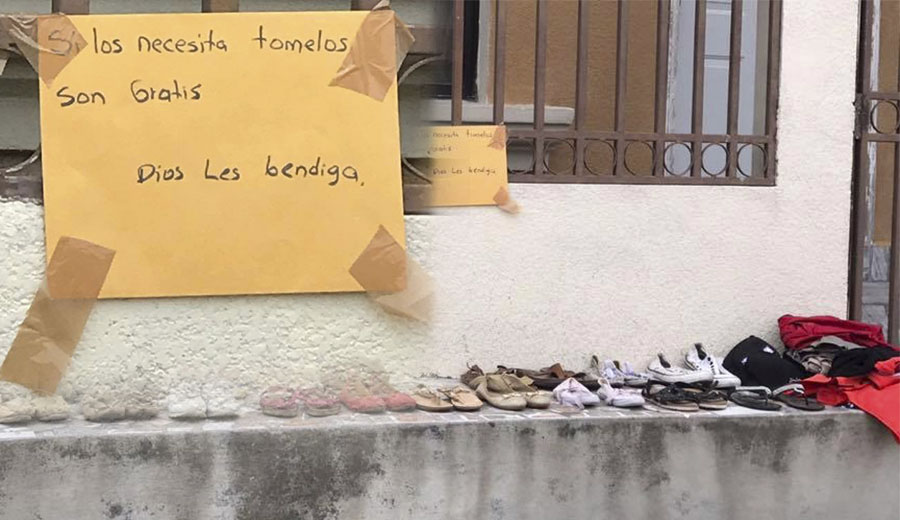 Si los necesita tomelos
son Gratis
Dios Les bendiga.
necesita tomelos
Gratis
Dios Les bendiga